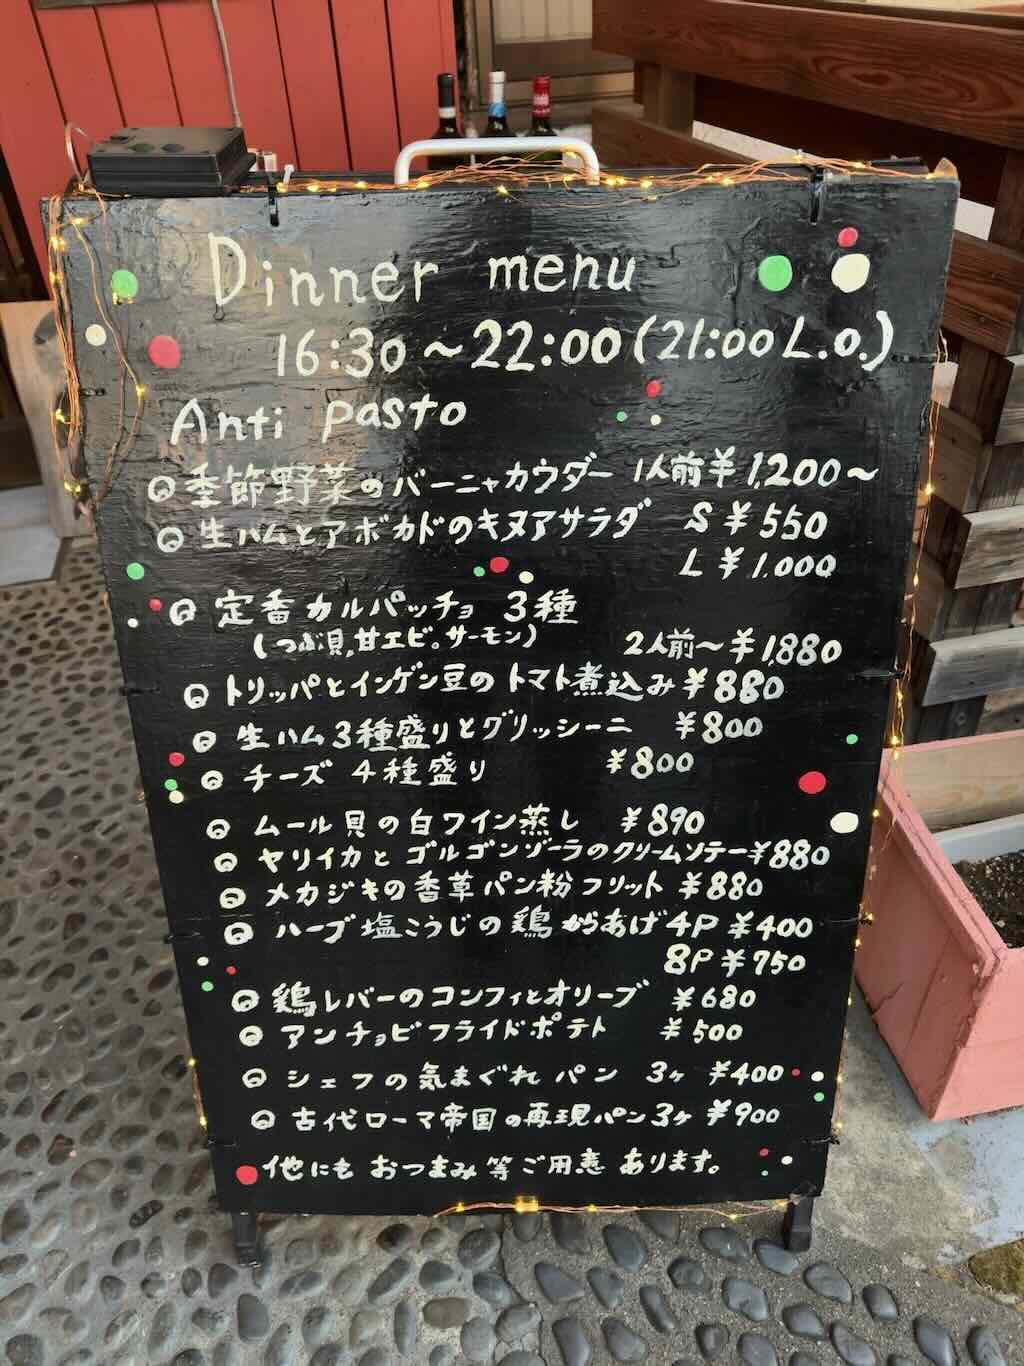 Dinner menu
16:30～22:00(21:00 L.O.)
Anti pasto
季節野菜のバーニャカウダー 1人前¥1,200～
生ハムとアボカドのキヌアサラダ S ¥550
L ¥1,000
定番カルパッチョ 3種
(つぶ貝,甘エビ。サーモン) 2人前～¥1,880
トリッパとインゲン豆のトマト煮込み¥880
生ハム3種盛りとグリッシーニ ¥800
チーズ 4種盛り ¥800
ムール貝の白ワイン蒸し ¥890
ヤリイカとゴルゴンゾーラのクリームソテー¥880
メカジキの香草パン粉フリット ¥880
ハーブ塩こうじの鶏からあげ4P ¥400
8P ¥750
鶏レバーのコンフィとオリーブ ¥680
アンチョビフライドポテト ¥500
シェフの気まぐれ パン 3ヶ ¥400
古代ローマ帝国の再現パン3ヶ ¥900
他にも おつまみ等ご用意 あります。